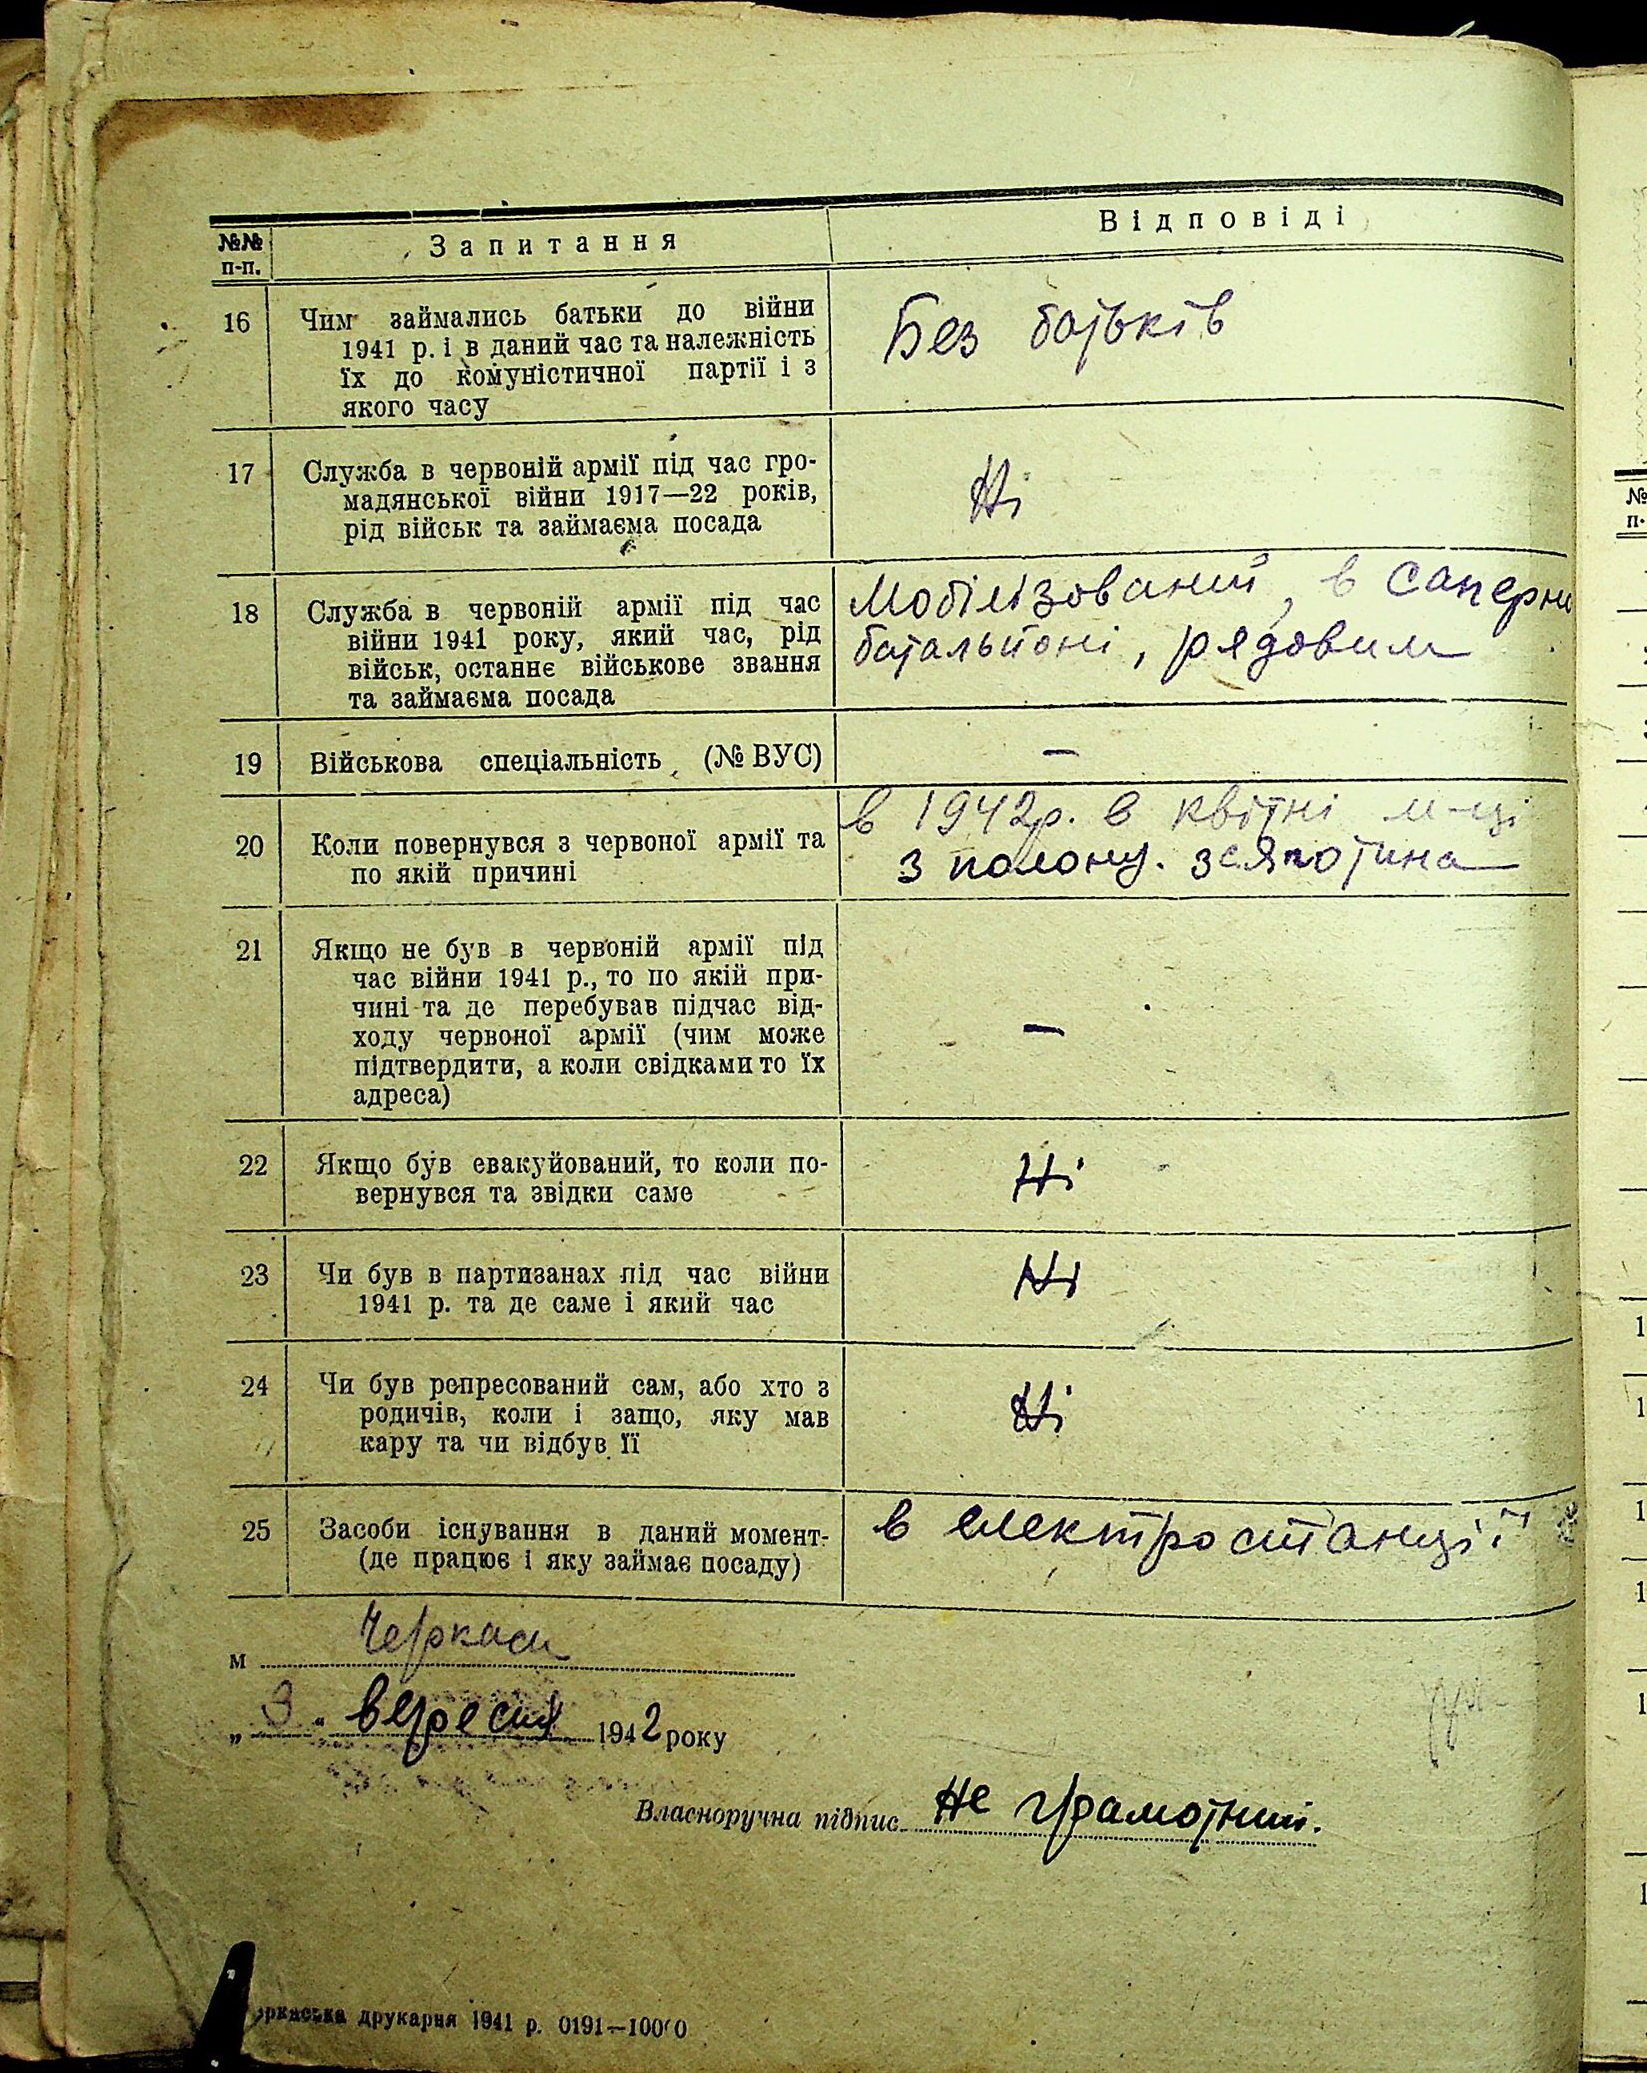 №№ п-п. Запитання Відповіді
16 Чим займались батьки до війни
1941 р. і в даний час та належність
їх до комуністичної партії і з
якого часу
Без батьків
17 Служба в червоній армії під час гро-
мадянської війни 1917—22 років,
рід військ та займаєма посада
Ні
18 Служба в червоній армії під час
війни 1941 року, який час, рід
військ, останнє військове звання
та займаєма посада
Мобілізований, в саперн
батальйоні, рядовим
19 Військова спеціальність (№ ВУС)
—
20 Коли повернувся з червоної армії та
по якій причині
в 1942р. в квітні м-ці
з полону. з
21 Якщо не був в червоній армії під
час війни 1941 р., то по якій при-
чині та де перебував підчас від-
ходу червоної армії (чим може
підтвердити, а коли свідками то їх
адреса)
—
22 Якщо був евакуйований, то коли по-
вернувся та звідки саме
Ні
23 Чи був в партизанах під час війни
1941 р. та де саме і який час
Ні
24 Чи був репресований сам, або хто з
родичів, коли і защо, яку мав
кару та чи відбув її
Ні
25 Засоби існування в даний момент
(де працює і яку займає посаду)
в електростанції
м Черкаси
„3" вересня 1942 року
Власноручна підпис Не грамотний.
друкарня 1941 р. 0191—10000
№
п-